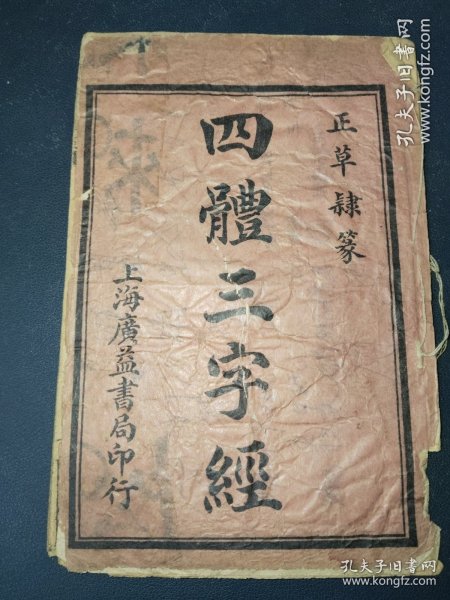 正草隸篆
四體三字經
上海廣益書局印行
孔夫子旧书网
www.kongfz.com
孔夫子旧书网
www.kongfz.com